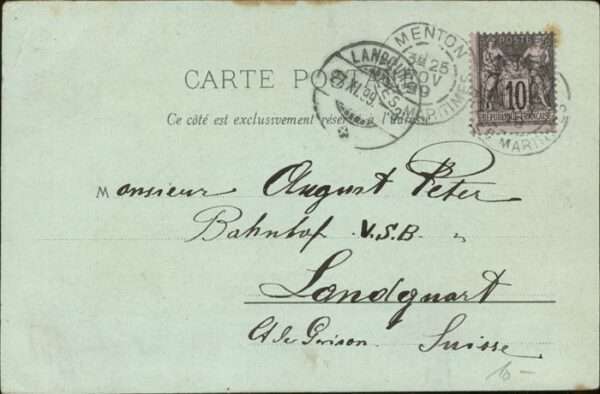 CARTE POSTALE
Ce côté est exclusivement réservé à l'adresse
MENTON
25
NOV
99
MARITIMES
LANDQUART
27.XI.99
POSTE
10
RÉPUBLIQUE FRANÇAISE
MARITIMES
Monsieur August Peter
Bahnhof V.S.B.
Landquart
Ct de Grison. Suisse.
10 –